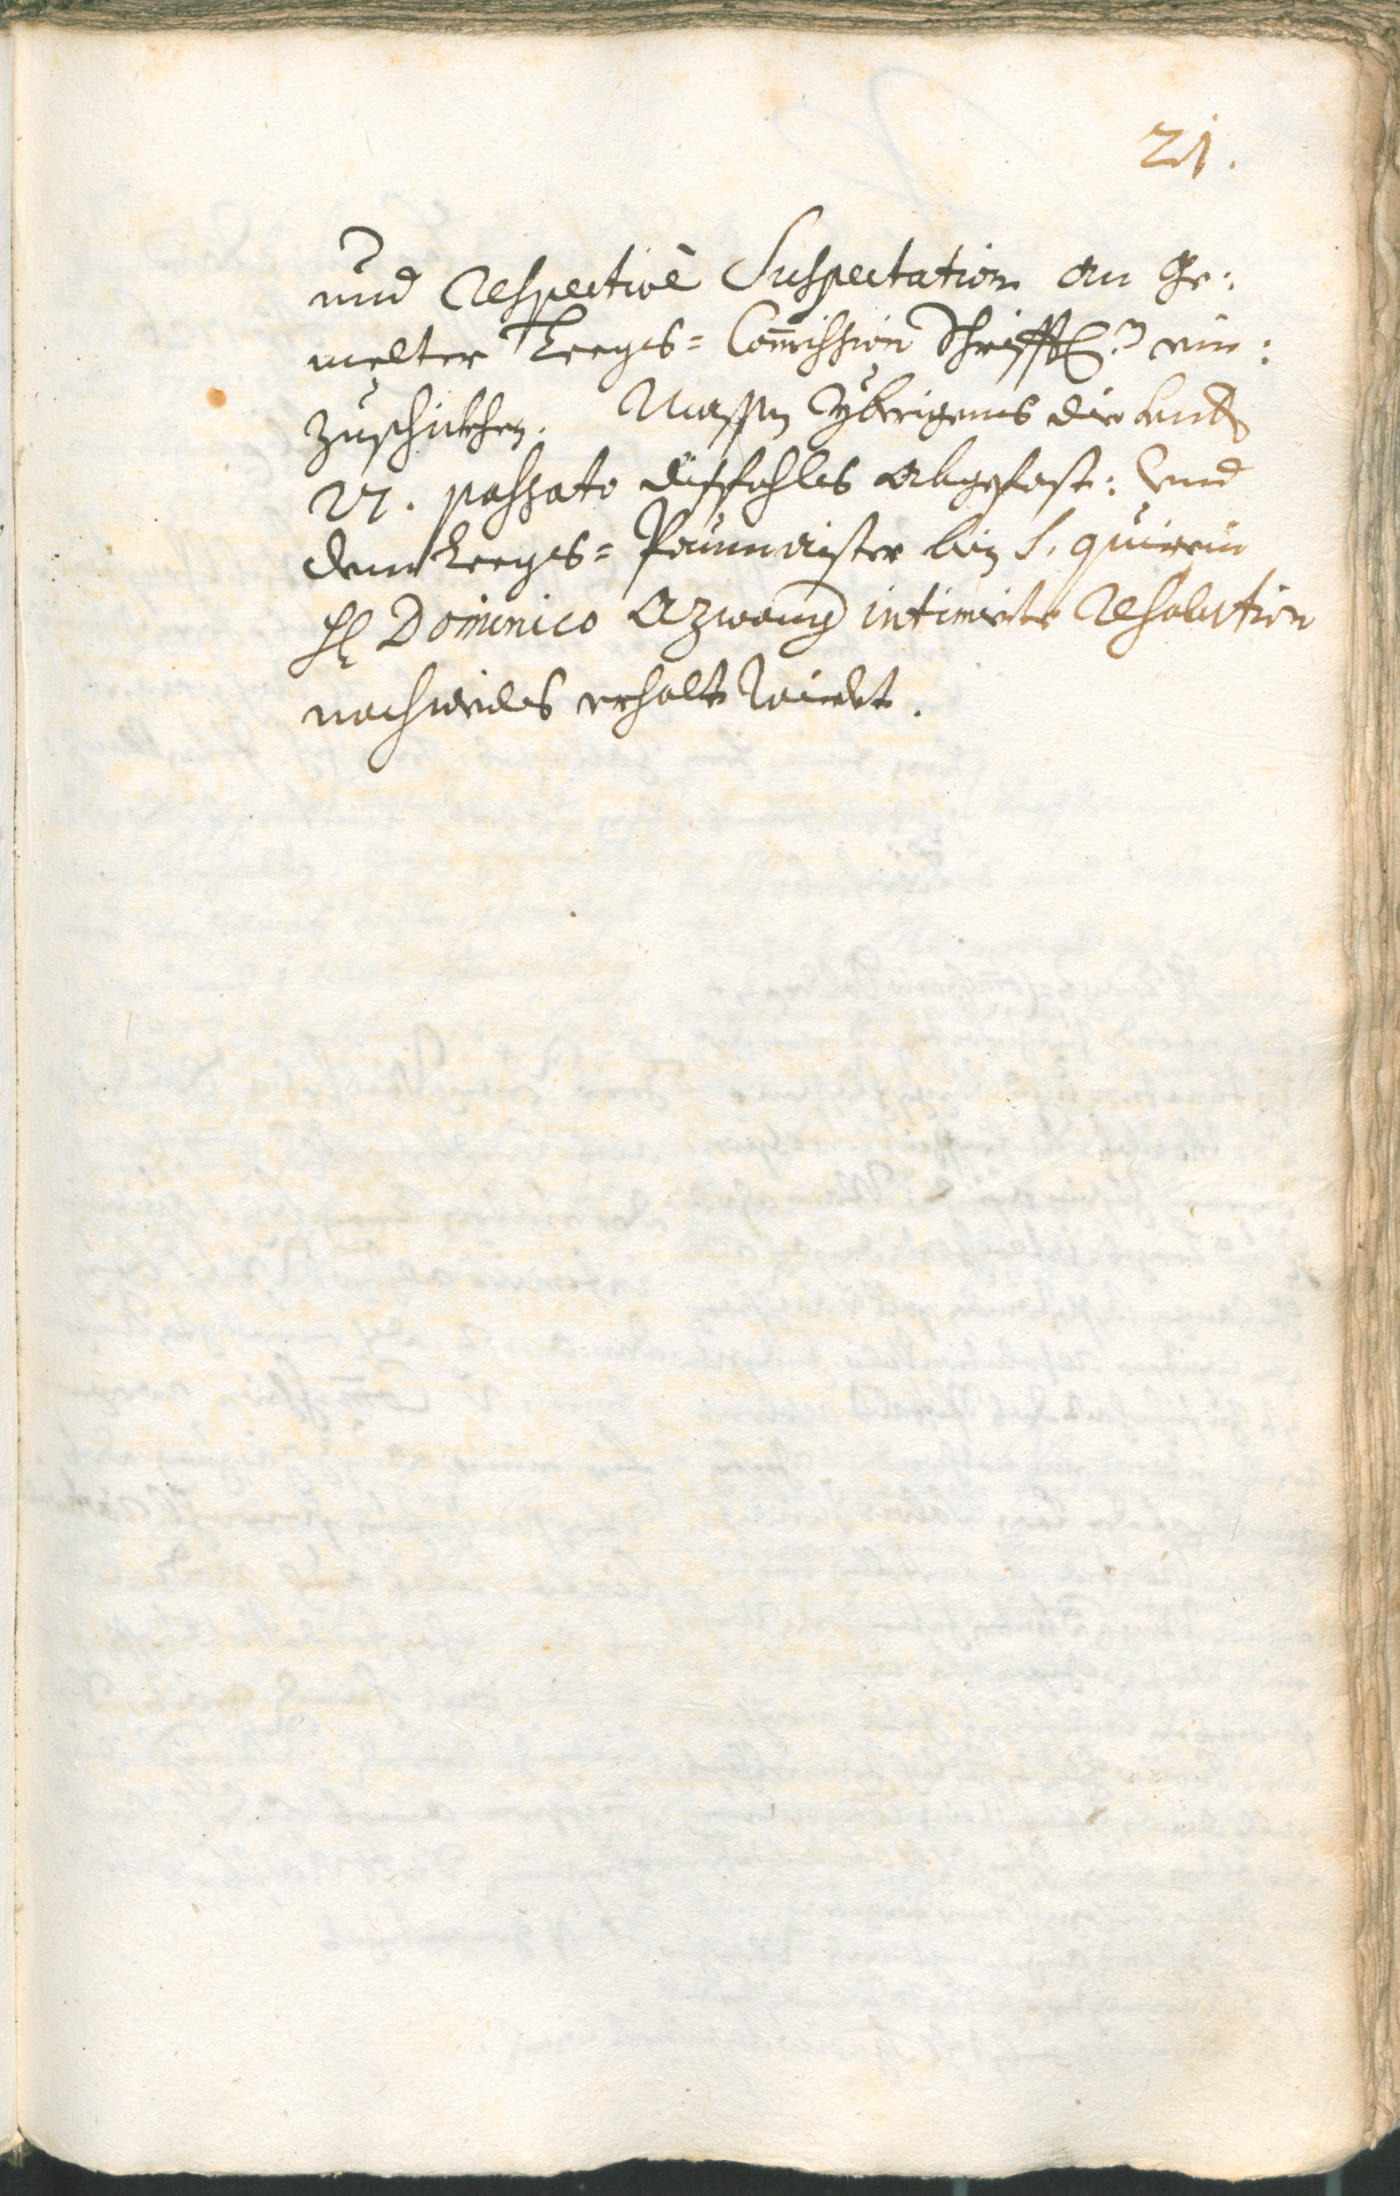 21.
und Respectivè Suspectation an Ge:
melter Leegs= Com̄ission Schrifftl: ein:
zuschickhen. Massen Ybrigens die
27. passato disfahls abgefast: Und
dem Leegs= Paumaister bey S. Quirein
H: Dominico Azwang intimierte Resolution
nachmals erhalte wirdet.